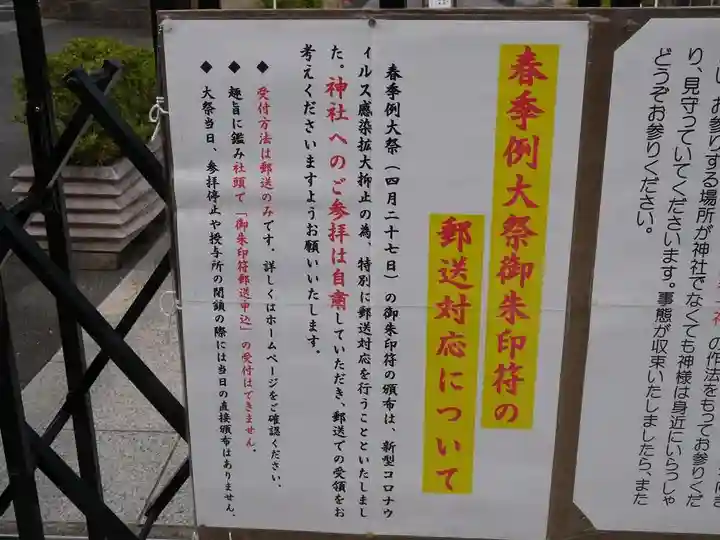 い、お参りする場所が神社でなくても神様は身近にいらっしゃ
り、見守っていてくださいます。事態が収束いたしましたら、また
どうぞお参りください。
春季例大祭御朱印符の
郵送対応について
春季例大祭(四月二十七日)の御朱印符の頒布は、新型コロナウ
ィルス感染拡大抑止の為、特別に郵送対応を行うことといたしまし
た。神社へのご参拝は自粛していただき、郵送での受領をお
考えくださいますようお願いいたします。
◆ 受付方法は郵送のみです。詳しくはホームページをご確認ください。
◆ 趣旨に鑑み社頭で「御朱印符郵送申込」の受付はできません。
◆ 大祭当日、参拝停止や授与所の閉鎖の際には当日の直接頒布はありません。